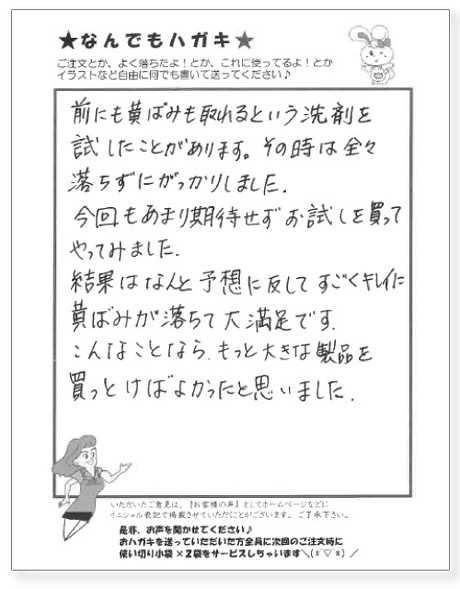 ★なんでもハガキ★
ご注文とか、よく落ちたよ！とか、これに使ってるよ！とか
イラストなど自由に何でも書いて送ってください♪
前にも黄ばみも取れるという洗剤を
試したことがあります。その時は全々
落ちずにがっかりしました.
今回もあまり期待せず お試しを買って
やってみました.
結果はなんと予想に反して すごくキレイに
黄ばみが落ちて大満足です.
こんなことなら、もっと大きな製品を
買っとけばよかったと思いました.
いただいたご意見は、『お客様の声』としてホームページなどに
イニシャル表記で掲載させていただくことがございます。ご了承下さい。
是非、お声を聞かせてください♪
おハガキを送っていただいた方全員に次回のご注文時に
使い切り小袋×2袋をサービスしちゃいます＼(*´▽`*)／